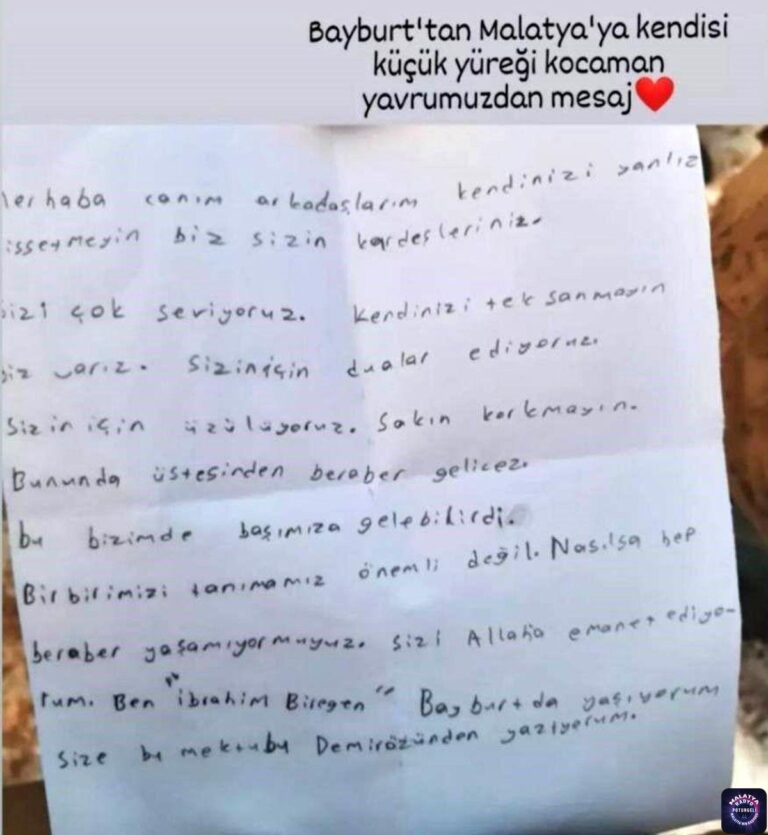 Bayburt'tan Malatya'ya kendisi
küçük yüreği kocaman
yavrumuzdan mesaj❤️
erhaba canım arkadaşlarım kendinizi yanlız
issetmeyin biz sizin kardeşleriniz.
izi çok seviyoruz. Kendinizi tek sanmayın
iz varız. Siziniçin dualar ediyoruz.
Sizin için üzülüyoruz. Sakın korkmayın.
Bununda üstesinden beraber gelicez.
bu bizimde başımıza gelebilirdi.
Birbirimizi tanımamız önemli değil. Nasılsa hep
beraber yaşamıyormuyuz. sizi Allaha emanet ediyo-
rum. Ben "ibrahim Biregen" Bayburtda yaşıyorum
size bu mektubu Demirözünden yazıyorum.
MALATYA
RADYO